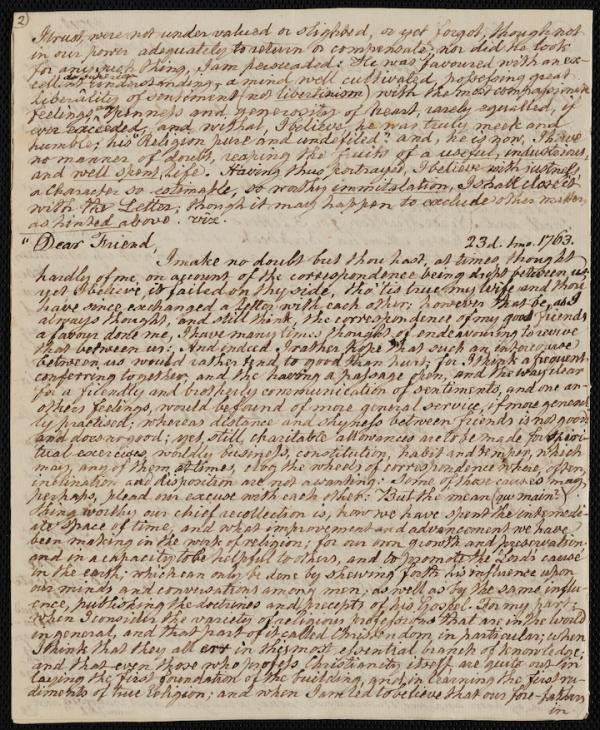 2)
I trust, were not under valued or slighted, or yet forgot, though not
in our power adequately to return or compensate; nor did he look
for any such thing, I am persuaded: He was favoured with an ex-
cellent & superior understanding, a mind well cultivated, possessing great
liberality of sentiment (not libertinism) with the most compassionate
feelings, an openness and generosity of heart, rarely equalled, if
ever exceeded, and, withal, I believe, he was truly meek and
humble; his Religion pure and undefiled: and, he is now, I have
no manner of doubt, reaping the fruits of a useful, industrious,
and well spent, life. Having thus portrayed, I believe with justness,
a character so estimable, so worthy immitalation, I shall close it
with the Letter; though it may happen to exclude other matter,
as hinted above. viz.
"Dear Friend, 23d. 1mo. 1763.
I make no doubt but thou hast, at times, thought
hardly of me, on account of the correspondence being dropt between us;
yet I believe it failed on thy side, tho' tis true, my wife and thou
have since exchanged a letter with each other: however that be, as I
always thought, and still think, the correspondence of my good friends
a favour done me, I have many times thought of endeavouring to revive
that between us: And indeed I rather hope that such an intercourse
between us would rather tend to good than hurt; for I think a frequent
conferring together, and the having a passage open, and the way clear
for a friendly and brotherly communication of sentiments, and one an-
others feelings, would be found of more general service, if more general-
ly practised; whereas distance and shyness between friends is not good
and does no good; yet, still, charitable allowances are to be made for spiri-
tual exercises, worldly business, constitution, habit and temper, which
may, any of them, at times, clog the wheels of correspondence where, often,
inclination and disposition are not awanting: Some of these causes may,
perhaps, plead our excuse with each other: But the mean (qu main?)
thing worthy our chief recollection is, how we have spent the intermedi-
ate space of time, and what improvement and advancement we have
been making in the work of religion; for our own growth and preservation
and in a capacity to be helpful to others, and to promote the Lord's cause
in the earth; which can only be done by shewing forth his influence upon
our minds and conversations among men, as well as by the same influ-
ence, publishing the doctrines and precepts of his Gospel. For my part,
when I consider the variety of religious professions that are in the World
in general, and that part of it called Christendom, in particular; when
I think that they all err in the most essential branch of knowledge;
and that even those who profess Christianity itself are quite out in
laying the first foundation of the building, and, in learning the first ru-
diments of true religion; and when I am led to believe that our fore-fathers
in